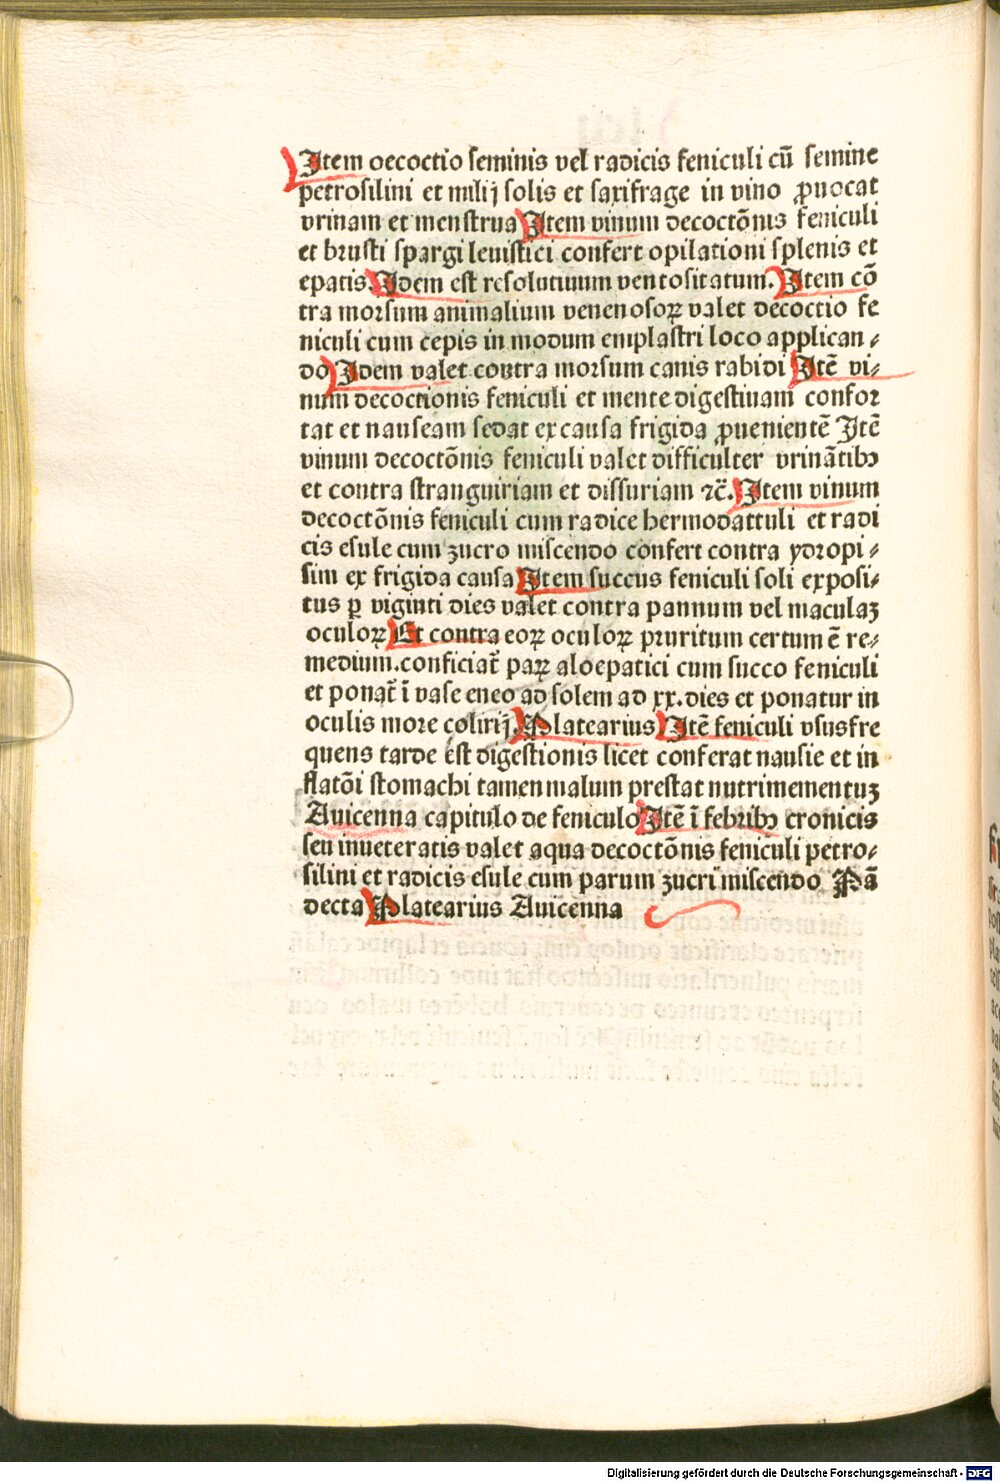 Item decoctio seminis vel radicis feniculi cū semine
petrosilini et milij solis et saxifrage in vino ꝓuocat
vrinam et menstrua Item vinum decoctōnis feniculi
et brusti spargi leuistici confert opilationi splenis et
epatis. Idem est resolutiuum ventositatum. Item cō
tra morsum animalium venenosoꝝ valet decoctio fe
niculi cum cepis in modum emplastri loco applican⸗
do Idem valet contra morsum canis rabidi Itē vi⸗
num decoctionis feniculi et mente digestiuam confor
tat et nauseam sedat ex causa frigida ꝓuenientē Itē
vinum decoctōnis feniculi valet difficulter vrinātibꝫ
et contra stranguiriam et dissuriam ⁊c̄. Item vinum
decoctōnis feniculi cum radice hermodattuli et radi
cis esule cum zucro miscendo confert contra ydropi⸗
sim ex frigida causa Item succus feniculi soli exposi⸗
tus ꝑ viginti dies valet contra pannum vel maculaꝫ
oculoꝝ Et contra eoꝝ oculoꝝ pruritum certum ē re⸗
medium. conficiat̄ paꝝ aloepatici cum succo feniculi
et ponat̄ ī vase eneo ad solem ad xx. dies et ponatur in
oculis more colirij. Platearius Itē feniculi vsusfre
quens tarde est digestionis licet conferat nausie et in
flatōi stomachi tamen malum prestat nutrimementuꝫ
Auicenna capitulo de feniculo Itē ī febribꝫ cronicis
seu inueteratis valet aqua decoctōnis feniculi petro⸗
silini et radicis esule cum parum zucri miscendo Pā
decta Platearius Auicenna
Digitalisierung gefördert durch die Deutsche Forschungsgemeinschaft - DFG